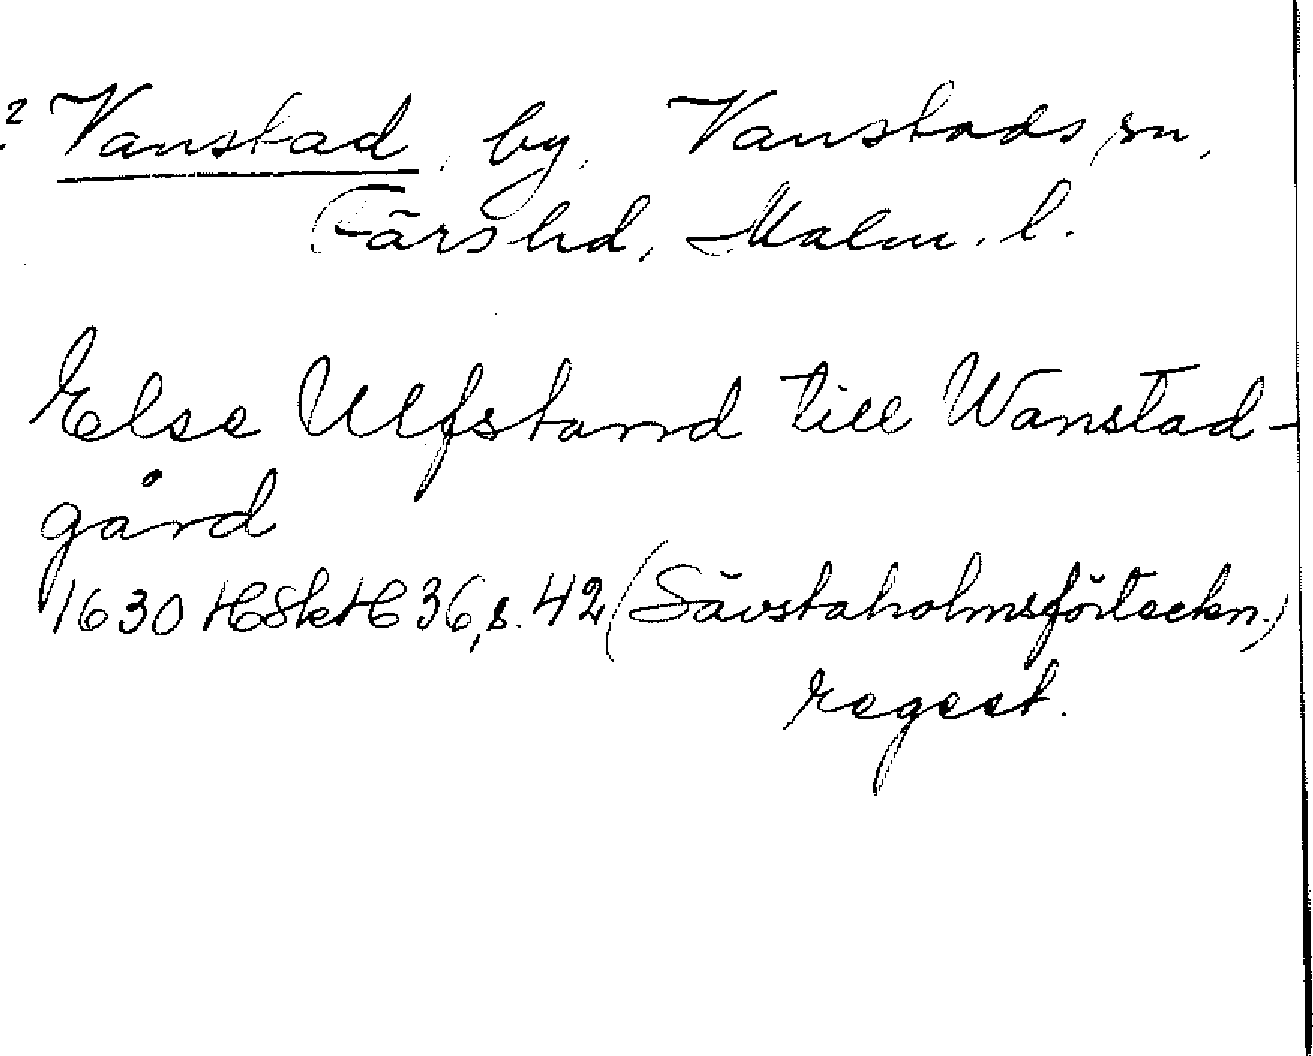 ? Vanstad, by, Vanstads sn,
Färs hd, Malm. l.
Else Ulfstand till Wanstad-
gård
1630 HSkH 36, s. 42 (Sävstaholmsförteckn.)
regest.